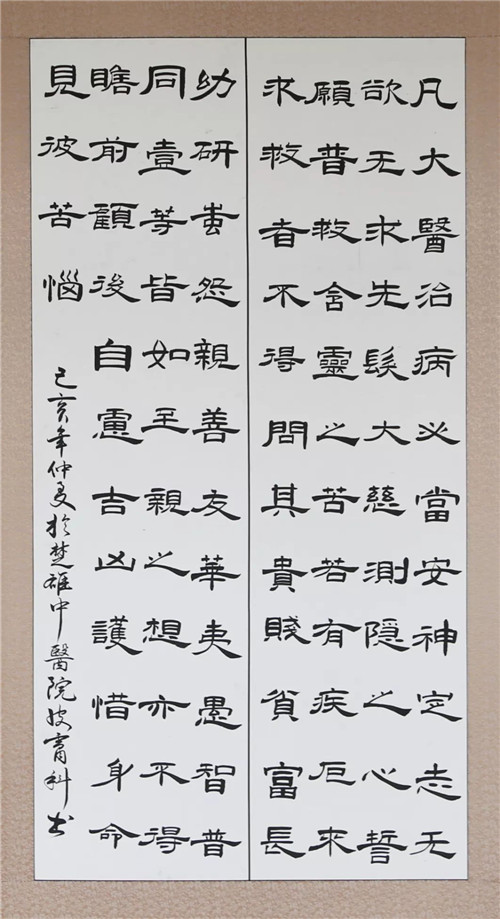 凡大醫治病必當安神定志无
欲无求先髮大慈測隱之心誓
願普救含靈之苦若有疾厄來
求救者不得問其貴賤貧富長
幼研蚩怨親善友華夷愚智普
同壹等皆如至親之想亦不得
瞻前顧後自慮吉凶護惜身命
見彼苦惱
己亥年仲夏於楚雄中醫院皮膚科书